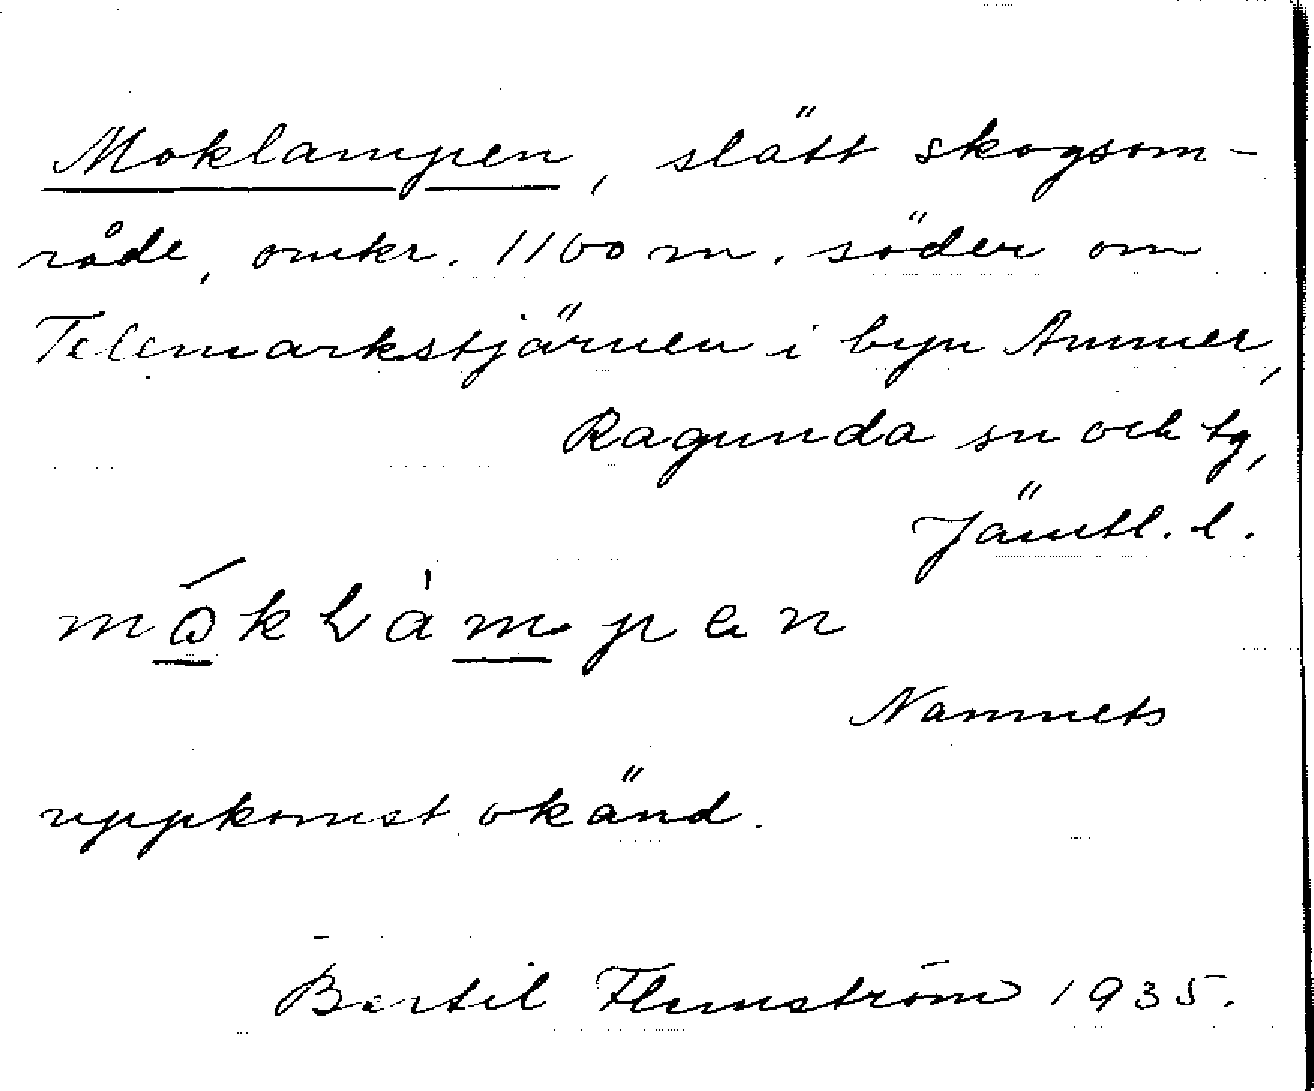 Moklampen, slätt skogsom-
råde, omkr. 1100 m. söder om
Telemarkstjärnen i byn Ammer,
Ragunda sn och tg,
Jämtl. l.
Namnets
uppkomst okänd.
Bertil Flemström 1935.